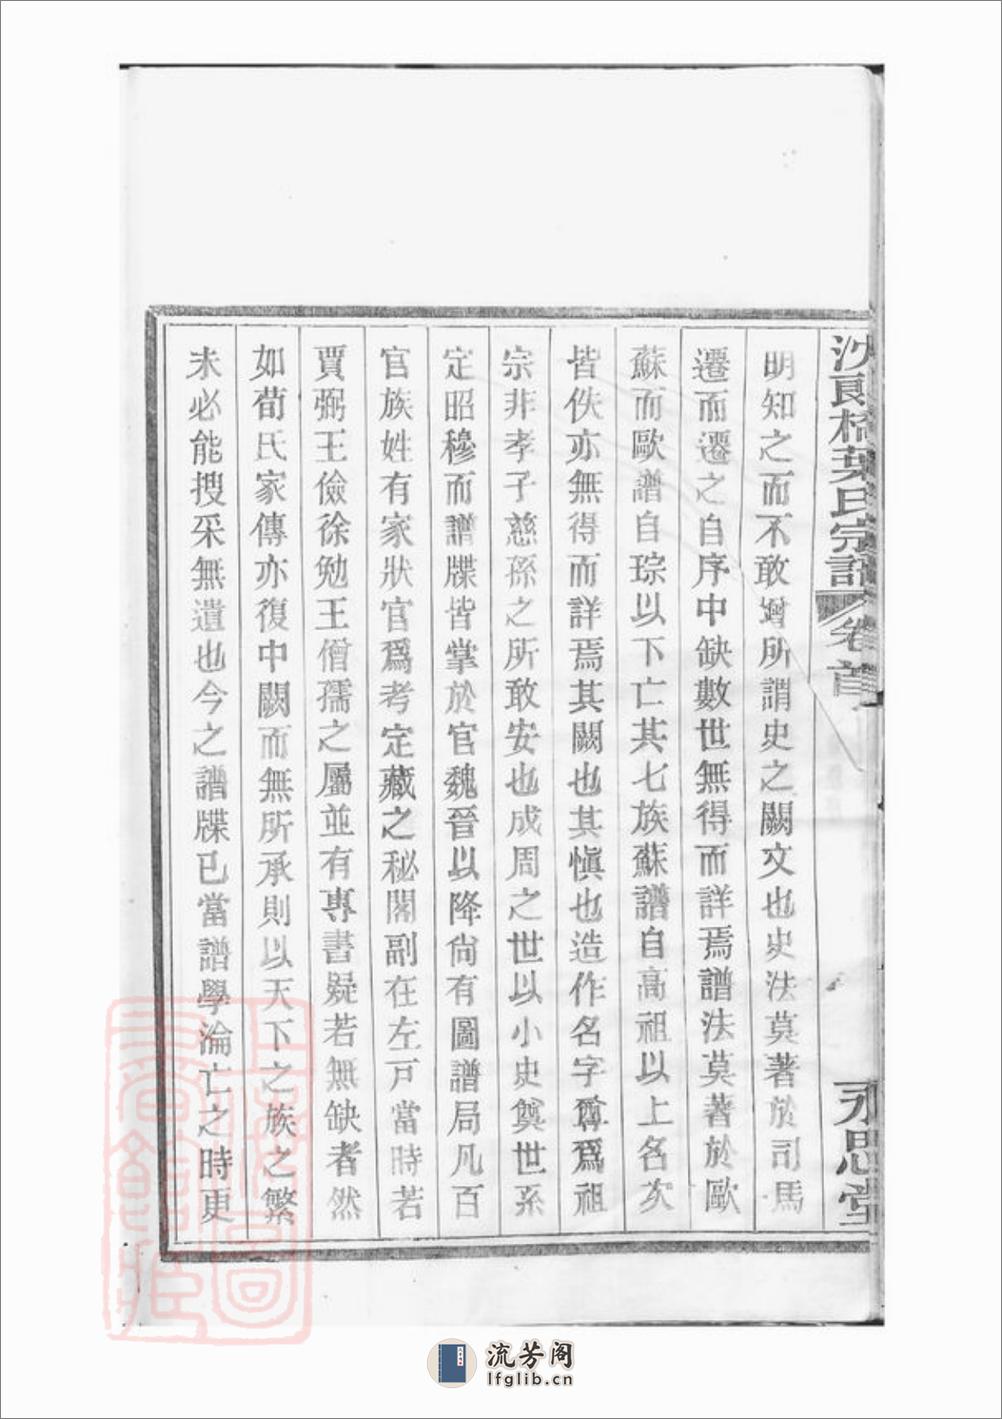 沈郎橋葉氏宗譜 卷首 永思堂
明知之而不敢增所謂史之闕文也史法莫著於司馬
遷而遷之自序中缺數世無得而詳焉譜法莫著於歐
蘇而歐譜自琮以下亡其七族蘇譜自高祖以上名次
皆佚亦無得而詳焉其闕也其慎也造作名字尊爲祖
宗非孝子慈孫之所敢安也成周之世以小史奠世系
定昭穆而譜牒皆掌於官魏晉以降尙有圖譜局凡百
官族姓有家狀官爲考定藏之秘閣副在左戸當時若
賈弼王儉徐勉王僧孺之屬並有專書疑若無缺者然
如荀氏家傳亦復中闕而無所承則以天下之族之繁
未必能搜采無遺也今之譜牒已當譜學淪亡之時更
流芳阁
lfglib.cn